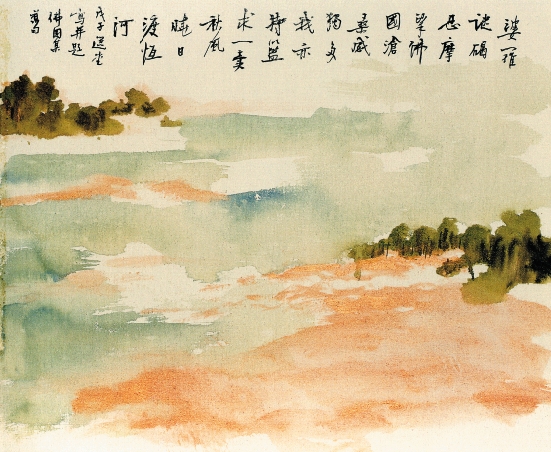 婆羅
謎碣
忍摩
挲佛
國滄
桑感
獨多
我亦
持籃
求一賣
秋風
曉日
渡恆
河
戊子選堂
寫并題
佛國集
舊句